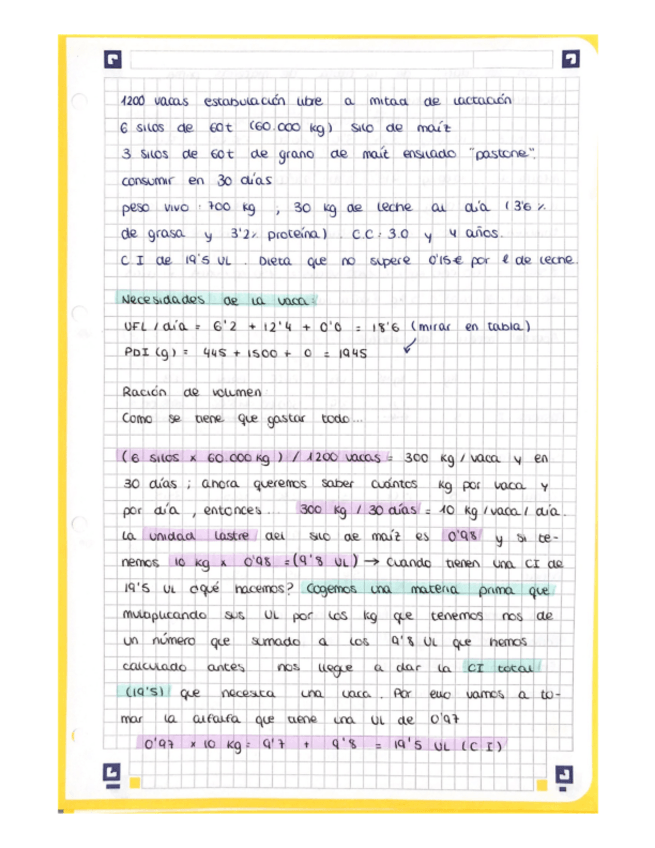 1200 vacas estabulación libre a mitad de lactación
6 silos de 60t (60.000 kg) silo de maíz
3 silos de 60t de grano de maíz ensilado "pastone".
consumir en 30 días
peso vivo: 700 kg, 30 kg de leche al día (3'6 %
de grasa y 3'2% proteína). C.C: 3.0 y 4 años.
C I de 19'5 UL. Dieta que no supere 0'15€ por l de leche.
Necesidades de la vaca:
UFL / día = 6'2 + 12'4 + 0'0 = 18'6 (mirar en tabla)
PDI (g) = 445 + 1500 + 0 = 1945
Ración de volumen
Como se tiene que gastar todo...
(6 silos x 60.000 kg) / 1200 vacas = 300 kg / vaca y en
30 días; ahora queremos saber cuántos kg por vaca y
por día, entonces... 300 kg / 30 días = 10 kg / vaca / día.
La unidad lastre del silo de maíz es 0'98 y si te-
nemos 10 kg x 0'98 = (9'8 UL) → Cuando tienen una CI de
19'5 UL ¿qué hacemos? Cogemos una materia prima que
multiplicando sus UL por los kg que tenemos nos de
un número que sumado a los 9'8 UL que hemos
calculado antes nos llegue a dar la CI total
(19'5) que necesita una vaca. Por ello vamos a to-
mar la alfalfa que tiene una UL de 0'97
0'97 x 10 kg = 9'7 + 9'8 = 19'5 UL (C I)